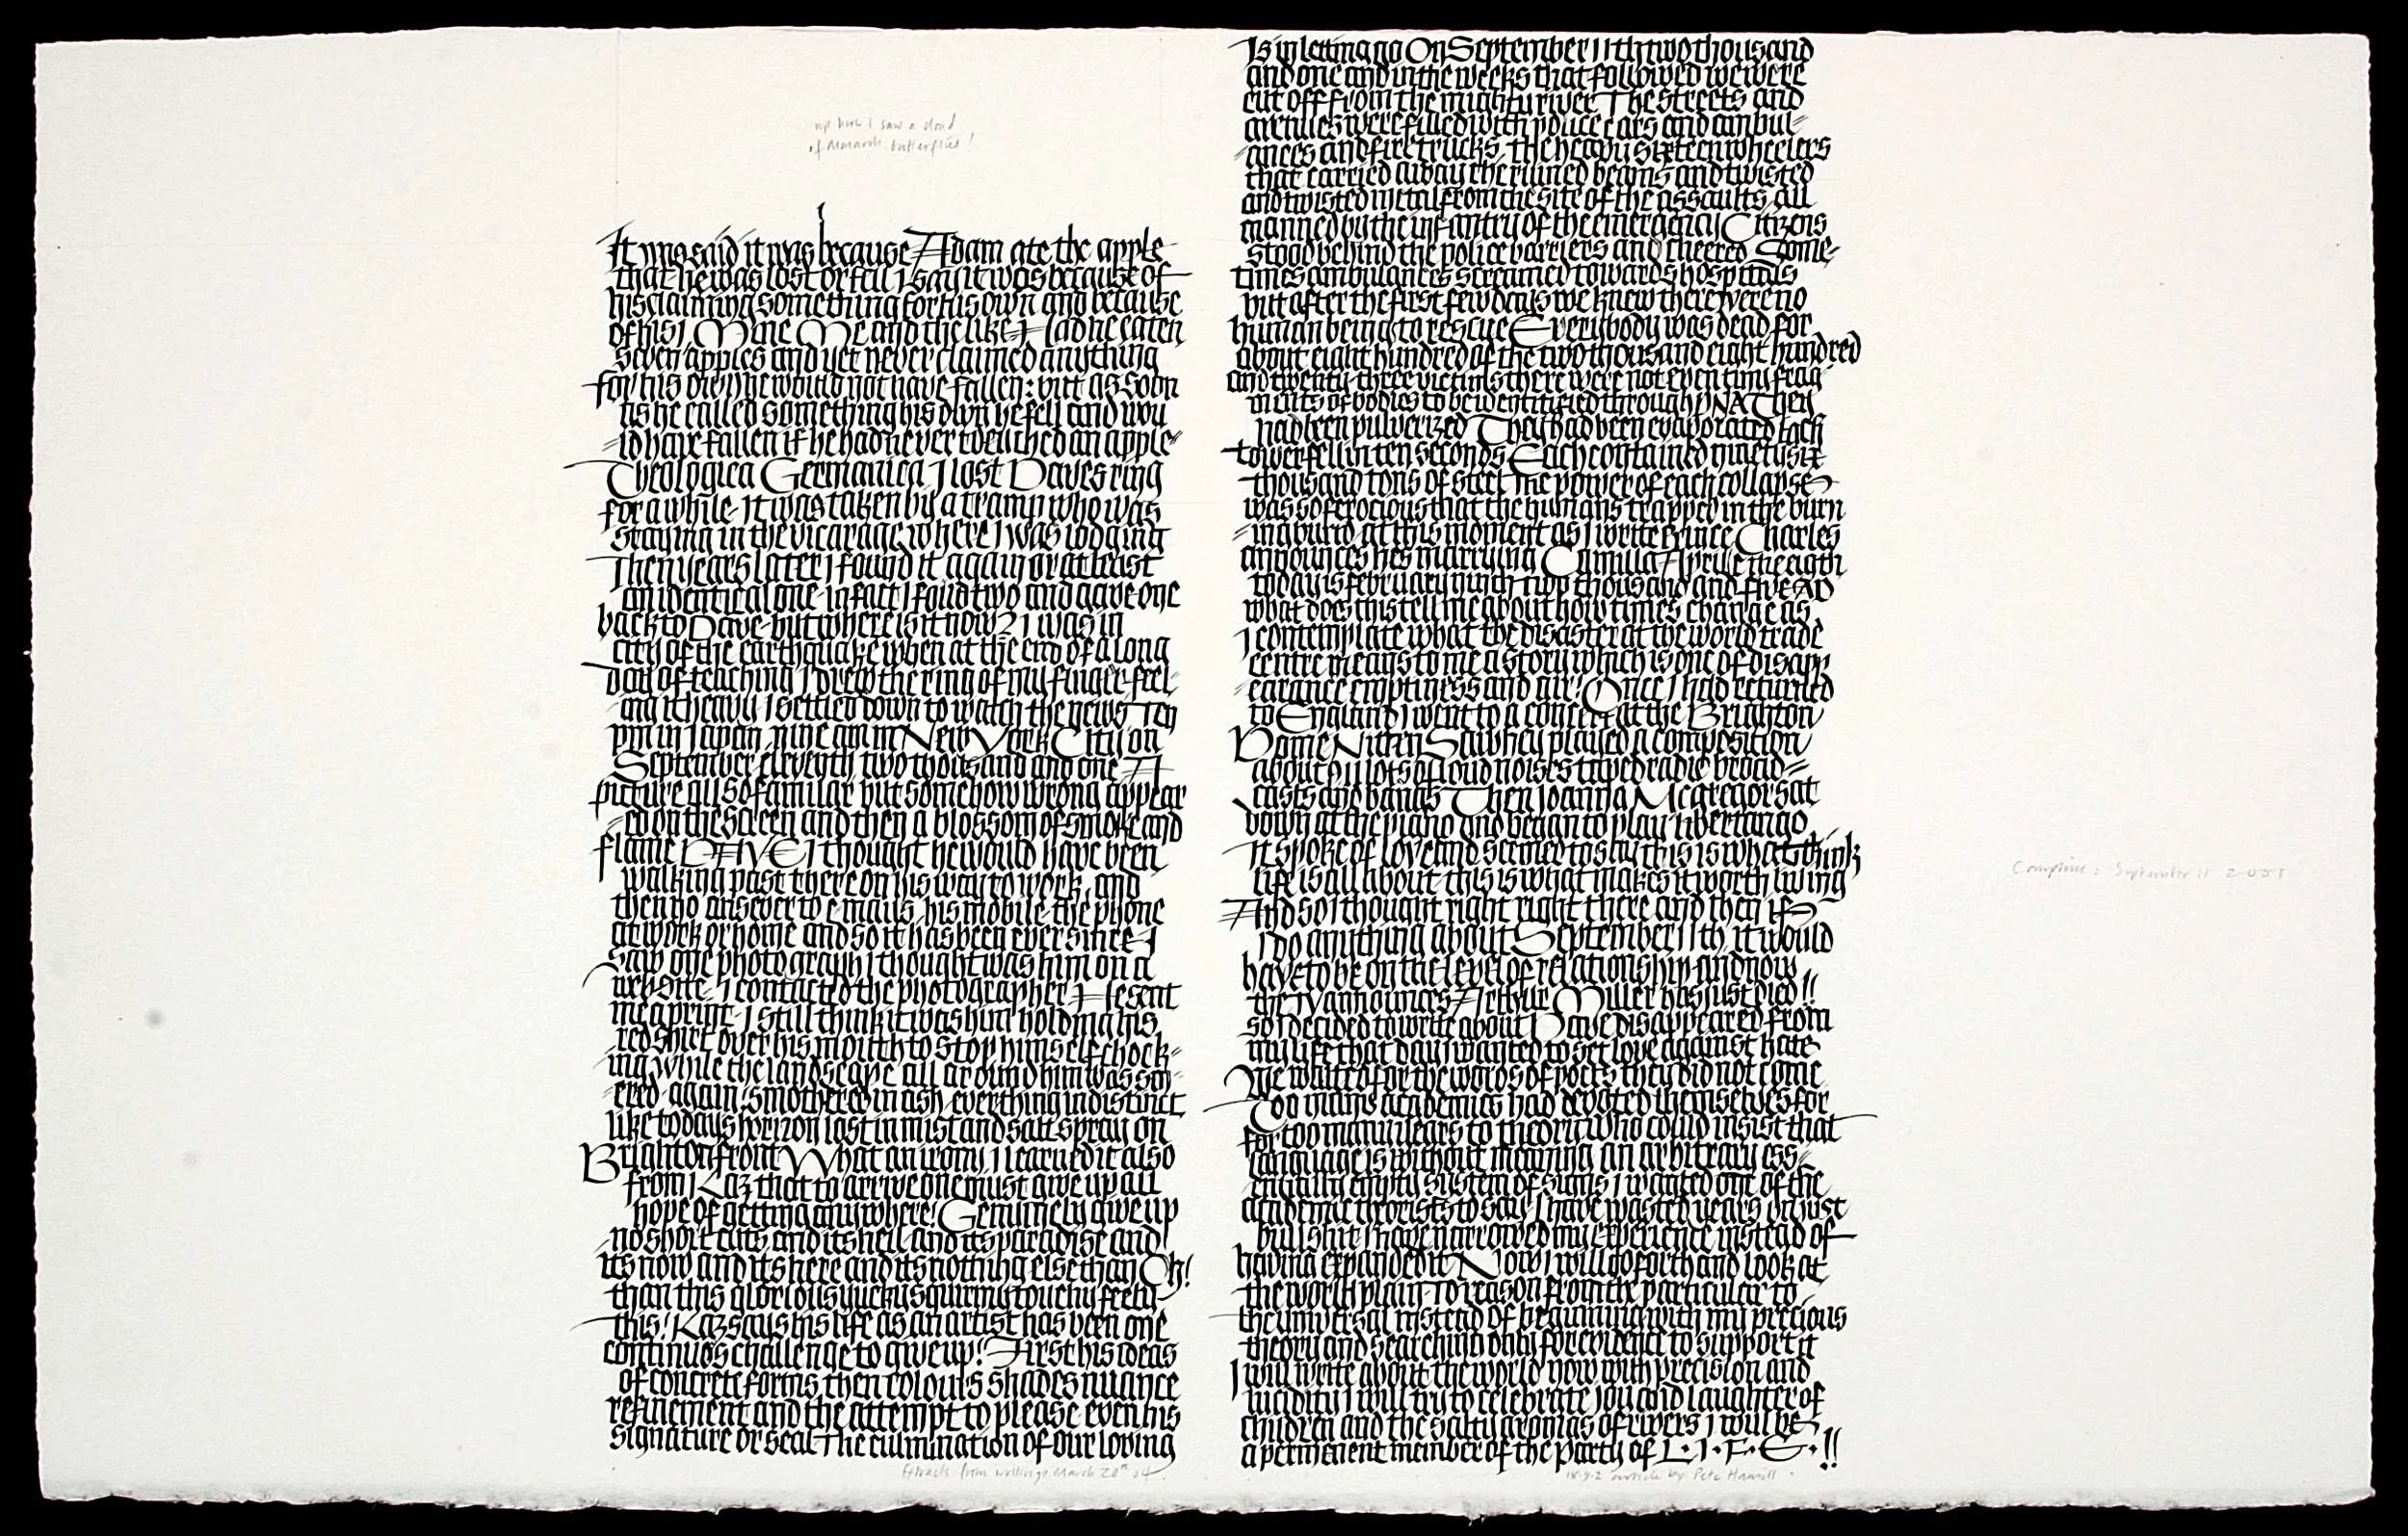 up here I saw a cloud
of Monarch butterflies!
It was said it was because Adam ate the apple
that he was lost or fell I say it was because of
his claiming something for his own and because
of his I Mine Me and the like Had he eaten
seven apples and yet never claimed anything
for his own he would not have fallen: but as soon
as he called something his own he fell and wou
ld have fallen if he had never touched an apple
Theologica Germanica I lost Daves ring
for a while. It was taken by a tramp who was
staying in the vicarage where I was lodging
Then years later I found it again or at least
an identical one. in fact I found two and gave one
back to Dave. but where is it now? I was in
city of the earthquake when at the end of a long
day of teaching I drew the ring of my finger. feel
ing it heavy I settled down to watch the news Ten
pm in Japan nine am in New York City on
September eleventh two thousand and one A
picture all so familar but somehow wrong appear
ed on the screen and then a blossom of smoke and
flame DAVE I thought he would have been
walking past there on his way to work, and
then no answer to emails, his mobile the phone
at work or home and so it has been ever since. I
saw one photograph I thought was him on a
website. I contacted the photographer He sent
me a print. I still think it was him holding his
red shirt over his mouth to stop himself chock-
ing while the landscape all around him was
ered again. smothered in ash, everything indistinct
like todays horizon lost in mist and salt spray on
Brighton front What an irony. I learned it also
from Kaz that to arrive one must give up all
hope of getting anywhere! Genuinely give up
no short cuts and its hell and its paradise and
its now and its here and its nothing else than Oh!
than this glorious yucky squirmy touchy feely
this! Kaz says his life as an artist has been one
continuos challenge to give up! First his ideas
of concrete forms then colours shades nuance
refinement and the attempt to please even his
signature or seal The culmination of our loving
Extracts from writings March 20th 04
Is in letting go On September 11th two thousand
and one and in the weeks that followed we were
cut off from the mighty river The streets and
avenues were filled with police cars and ambul-
ances and fire trucks, the heavy sixteen wheelers
that carried away the ruined beams and twisted
and twisted metal from the site of the assaults, all
manned by the infantry of the emergency Citizens
stood behind the police barriers and cheered Some-
times ambulances screamed towards hospitals
but after the first few days we knew there were no
human being to rescue Everybody was dead for
about eight hundred of the two thousand eight hundred
and twenty-three victims there were not even tiny frag
ments of bodies to be identified through DNA They
had been pulverized They had been evaporated Each
tower fell in ten seconds Each contained ninety six
thousand tons of steel The power of each collapse
was so ferocious that the humans trapped in the burn
ing at this moment as I write Prince Charles
announces hes marrying Camilla Aprille the eigth
today is february ninth two thousand and five AD
what does this tell me about how times change as
I contemplate what the disaster at the world trade
centre means to me a story which is one of disapp
earance emptiness and air! Once I had returned
to England I went to a concert at the Brighton
Dome Nitin Sawhey played a composition
about 911 lots of loud noises taped radio broad-
casts and bangs Then Joanna Mcgregor sat
down at the piano and began to play libertango
it spoke of love and seemed to say this is what I think
life is all about this is what makes it worth living
And so I thought right right there and then if
I do anything about September 11th it would
have to be on the level of relationship and now
the TV announces Arthur Miller has just died!!
so I decided to write about Dave disappeared from
my life that day I wanted to set love against hate
We waited for the words of poets they did not come
Too many academics had devoted themselves for
for too many years to theory Who could insist that
language is without meaning an arbitrary ess
entially empty system of signs I wanted one of the
academic theorists to say I have wasted years on just
bullshit I have narrowed my experience instead of
having expanded it Now I will go forth and look at
the world plain To reason from the particular to
the universal instead of beginning with my precious
theory and searching only for evidence to support it
I will write about the world now with precision and
lucidity I will try to celebrate joy and laughter of
children and the salty aromas of rivers I will be
a permenent member of the party of L·I·F·E·!!
18·9·2 article by Pete Hamill.
Compline: September 11 2001